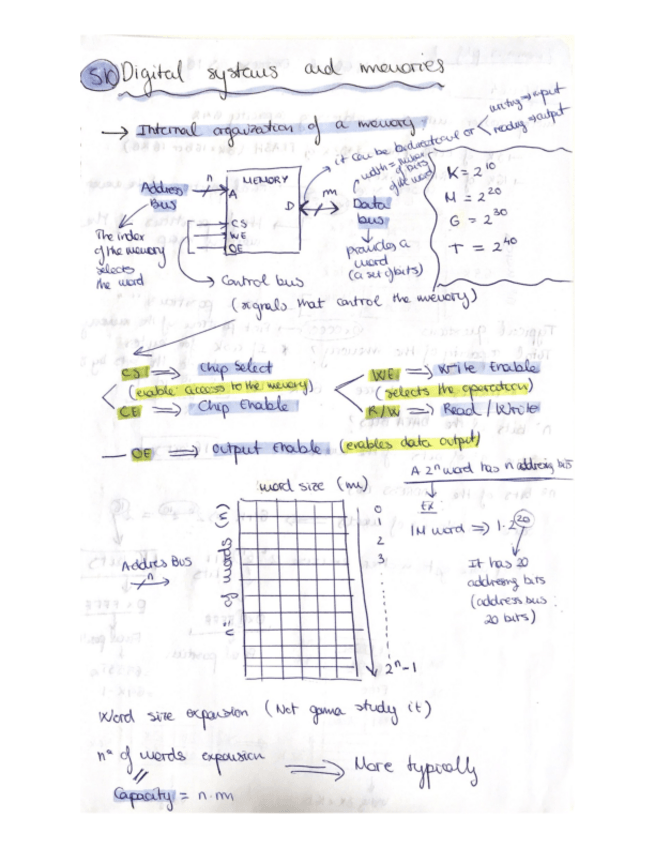 5K Digital systems and memories
→ Internal organization of a memory
it can be bidirectional or < writing → input
reading → output
Address Bus
n
MEMORY
A
D
CS
WE
OE
m
width = number of bits of the word
Data bus
provides a word
(a set of bits)
The index
of the memory
selects
the word
Control bus
(signals that control the memory)
K = 2^10
M = 2^20
G = 2^30
T = 2^40
CS ⇒ Chip Select
(enable access to the memory)
CE ⇒ Chip Enable
WE ⇒ Write Enable
(selects the operation)
R/W ⇒ Read / Write
OE ⇒ Output Enable (enables data output)
A 2^n word has n addressing bits
Ex:
1M word ⇒ 1·2^20
It has 20
addressing bits
(address bus:
20 bits)
word size (m)
nº of words (n)
Address Bus
n
0
1
2
3
2^n-1
Word size expansion (Not gonna study it)
nº of words expansion ⇒ More typically
Capacity = n·m